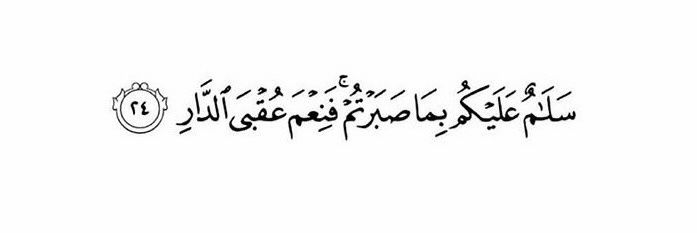 سَلَـٰمٌ عَلَيْكُم بِمَا صَبَرْتُمْ ۚ فَنِعْمَ عُقْبَى ٱلدَّارِ ٢٤